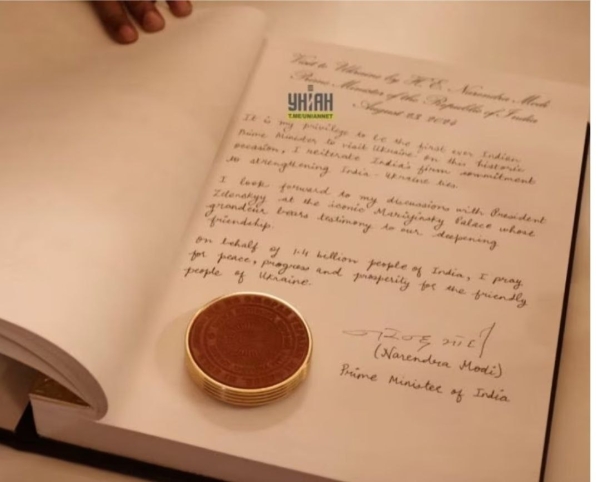 Visit to Ukraine by H. E. Narendra Modi
Prime Minister of the Republic of India
August 23, 2024
УНІАН
T.ME/UNIANNET
It is my privilege to be the first ever Indian
Prime Minister to visit Ukraine. On this historic
occasion, I reiterate India's firm commitment
to strengthening India - Ukraine ties.
I look forward to my discussions with President
Zelenskyy at the iconic Mariyinsky Palace whose
grandeur bears testimony to our deepening
friendship.
On behalf of 1.4 billion people of India, I pray
for peace, progress and prosperity for the friendly
people of Ukraine.
(Narendra Modi)
Prime Minister of India